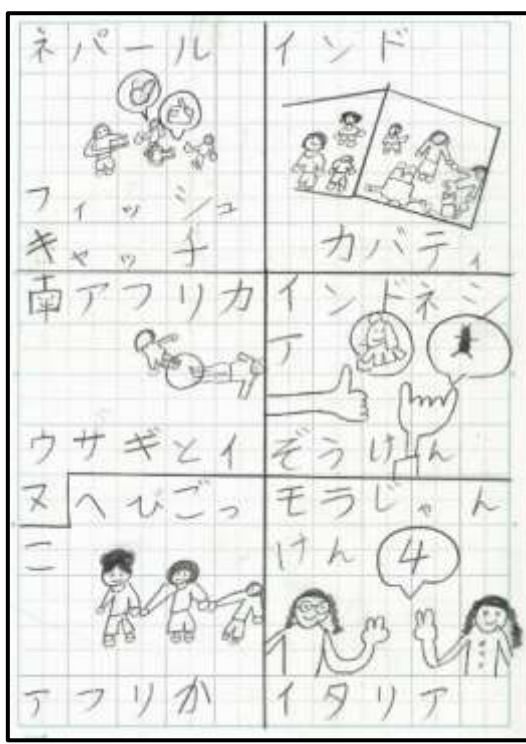 ネパール
フィッシュ
キャッチ
インド
カバティ
南アフリカ
ウサギとイ
ヌ
インドネシ
ア
ぞうけん
へびごっ
こ
アフリか
モラじゃん
けん
4
イタリア